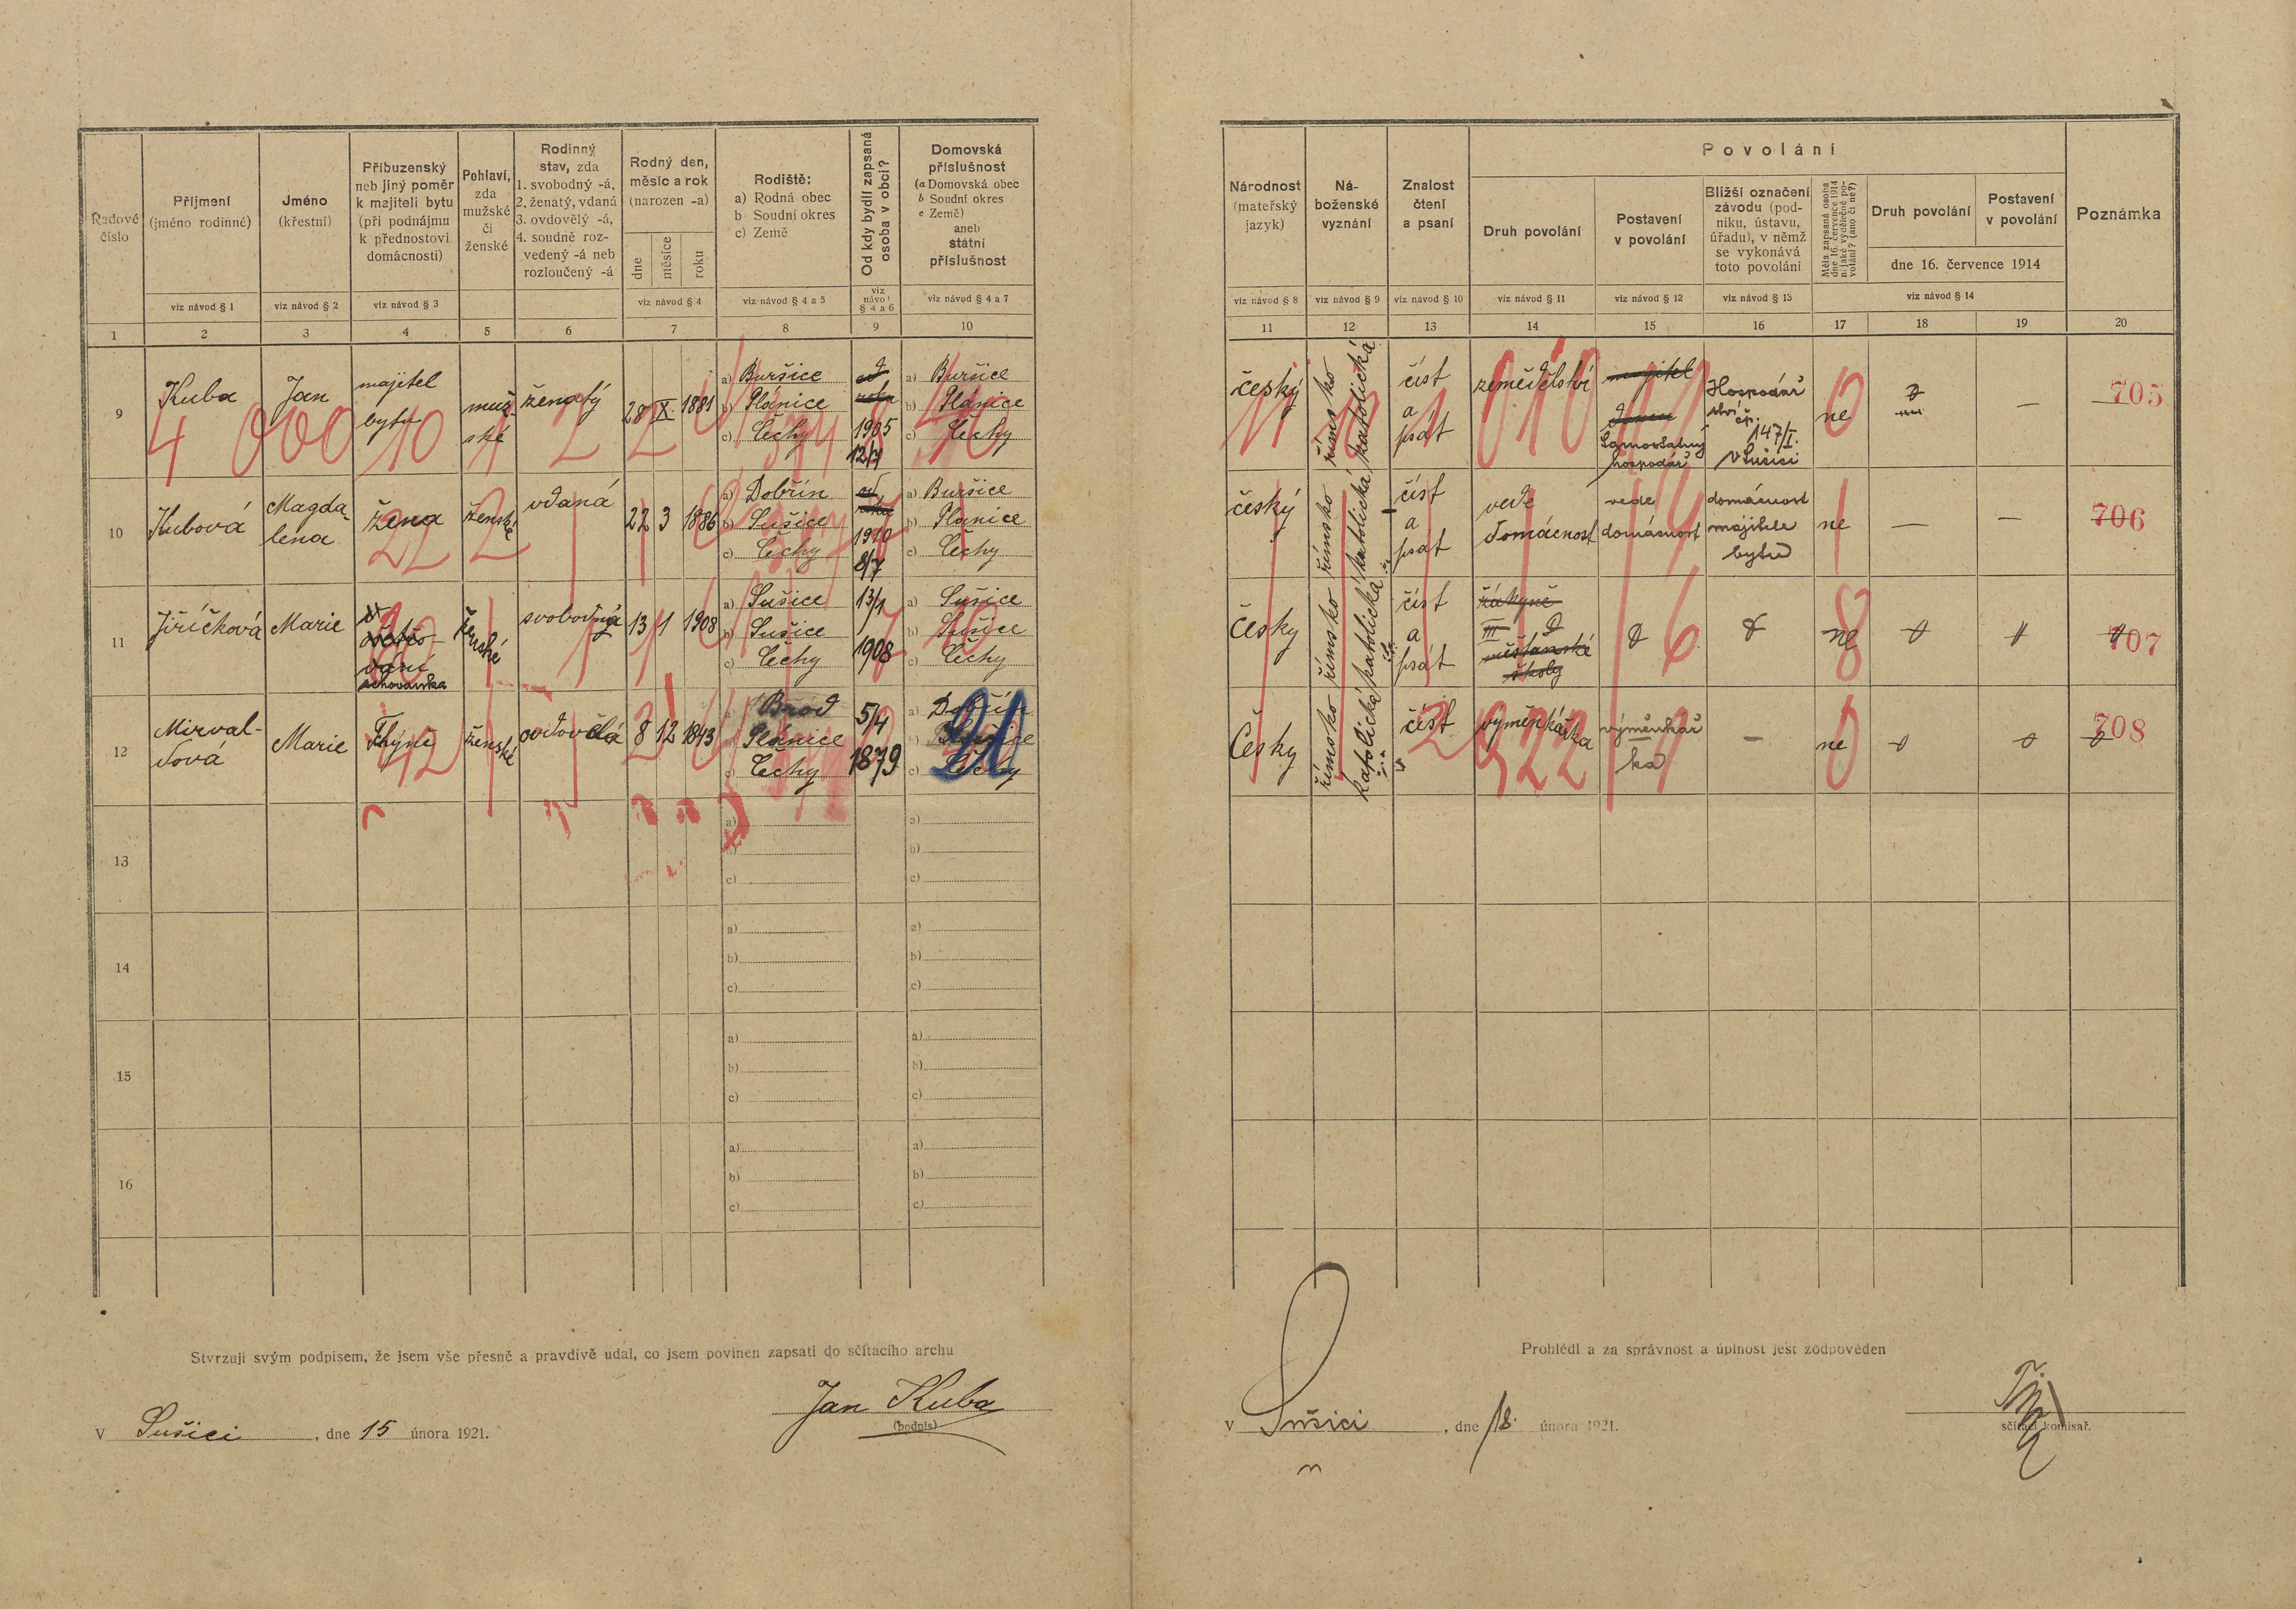 Řadové
číslo
Příjmení
(jméno rodinné)
viz návod § 1
Jméno
(křestní)
viz návod § 2
Příbuzenský
neb jiný poměr
k majiteli bytu
(při podnájmu
k přednostovi
domácnosti)
viz návod § 3
Pohlaví,
zda
mužské
či
ženské
Rodinný
stav, zda
1. svobodný -á,
2. ženatý, vdaná
3. ovdovělý -á,
4. soudně roz-
vedený -á neb
rozloučený -á
Rodný den,
měsíc a rok
(narozen -a)
dne
měsíce
roku
viz návod § 4
Rodiště:
a) Rodná obec
b Soudní okres
c) Země
viz návod § 4 a 5
Od kdy bydlí zapsaná
osoba v obci?
viz
návod
§ 4 a 6
Domovská
příslušnost
(a Domovská obec
b Soudní okres
c Země)
aneb
státní
příslušnost
viz návod § 4 a 7
1 2 3 4 5 6 7 8 9 10
9
Kuba
Jan
majitel
bytu
muž-
ské
ženatý
28 X. 1881
a) Buršice
b) Plánice
c) Čechy
od
roku
1905
12/7
a) Buršice
b) Plánice
c) Čechy
4 000 10 1 2 2
10
Kubová
Magda-
lena
žena
ženské
vdaná
22 3 1886
a) Dobřín
b) Sušice
c) Čechy
od
roku
1910
8/7
a) Buršice
b) Plánice
c) Čechy
22 2
11
Jiříčková
Marie
schovanka
ženské
svobodná
13 1 1908
a) Sušice
b) Sušice
c) Čechy
13/1
1908
a) Sušice
b) Sušice
c) Čechy
12
Mirval-
dová
Marie
Thýně
ženské
ovdovělá
8 12 1843
a) Brod
b) Plánice
c) Čechy
5/4
1879
a) Dobřín
b)
c) Čechy
42
21
13
a)
b)
c)
a)
b)
c)
14
a)
b)
c)
a)
b)
c)
15
a)
b)
c)
a)
b)
c)
16
a)
b)
c)
a)
b)
c)
Stvrzuji svým podpisem, že jsem vše přesně a pravdivě udal, co jsem povinen zapsati do sčítacího archu
V Sušici, dne 15 února 1921.
Jan Kuba
(podpis)
Národnost
(mateřský
jazyk)
viz návod § 8
Ná-
boženské
vyznání
viz návod § 9
Znalost
čtení
a psaní
viz návod § 10
Povolání
Druh povolání
viz návod § 11
Postavení
v povolání
viz návod § 12
Bližší označení
závodu (pod-
niku, ústavu,
úřadu), v němž
se vykonává
toto povolání
viz návod § 13
Měla zapsaná osoba
dne 16. července 1914
nějaké výdělečné po-
volání? (ano či ne?)
Druh povolání
Postavení
v povolání
dne 16. července 1914
viz návod § 14
Poznámka
11 12 13 14 15 16 17 18 19 20
český
římsko katolická
číst
a
psát
zemědělství
majitel
domu
Samostatný
hospodář
Hospodář
147/I.
v Sušici
ne
—
705
010
0
český
římsko katolická
číst
a
psat
vede
domácnost
vede
domácnost
domácnost
majitele
bytu
ne
—
—
706
český
římsko katolická
číst
a
psát
žákyně
III
měšťanské
školy
ne
707
6
8
Česky
římsko katolická
číst
výměnkářka
výměnkář
ka
—
ne
708
2 922
0
Prohlédl a za správnost a úplnost jest zodpověden
V Sušici, dne 18. února 1921.
sčítací komisař.